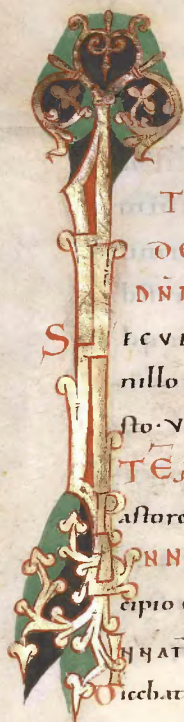 T
DO
DNI
S ECVE
nillo
sto. V
TE
Pastore
INN
cipio
NNAT
Dicebat